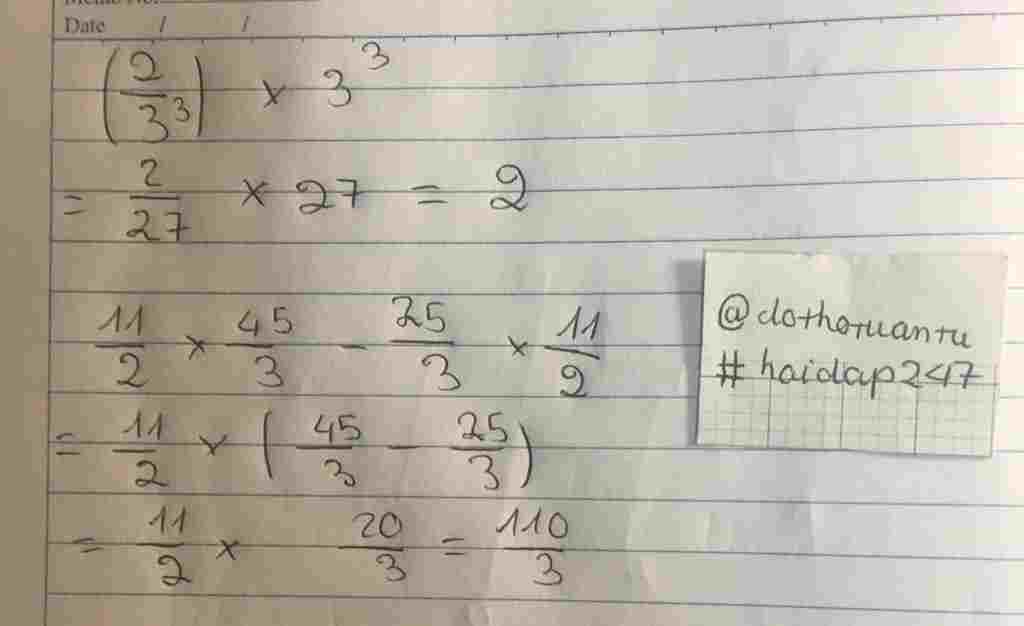 Date / /
(2/3³) × 3³
= 2/27 × 27 = 2
11/2 × 45/3 - 25/3 × 11/2
= 11/2 × (45/3 - 25/3)
= 11/2 × 20/3 = 110/3
@dothotuantu
#hoidap247